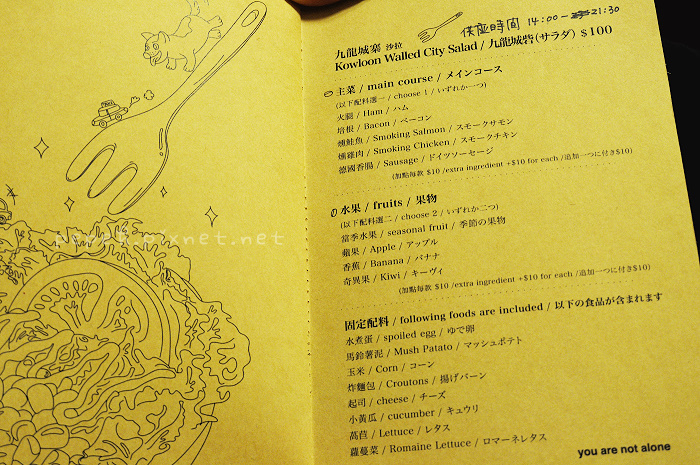 供應時間 14:00-21:30
九龍城寨 沙拉
Kowloon Walled City Salad / 九龍城砦(サラダ) $100
主菜 / main course / メインコース
(以下配料選一 / choose 1 / いずれか一つ)
火腿 / Ham / ハム
培根 / Bacon / ベーコン
燻鮭魚 / Smoking Salmon / スモークサモン
燻雞肉 / Smoking Chicken / スモークチキン
德國香腸 / Sausage / ドイツソーセージ
(加點每款 $10 /extra ingredient +$10 for each /追加一つに付き$10)
水果 / fruits / 果物
(以下配料選二 / choose 2 / いずれか二つ)
當季水果 / seasonal fruit / 季節の果物
蘋果 / Apple / アップル
香蕉 / Banana / バナナ
奇異果 / Kiwi / キーヴィ
(加點每款 $10 /extra ingredient +$10 for each /追加一つに付き$10)
固定配料 / following foods are included / 以下の食品が含まれます
水煮蛋 / spoiled egg / ゆで卵
馬鈴薯泥 / Mush Patato / マッシュポテト
玉米 / Corn / コーン
炸麵包 / Croutons / 揚げパーン
起司 / cheese / チーズ
小黃瓜 / cucumber / キュウリ
萵苣 / Lettuce / レタス
蘿蔓菜 / Romaine Lettuce / ロマーネレタス
you are not alone
TAXI